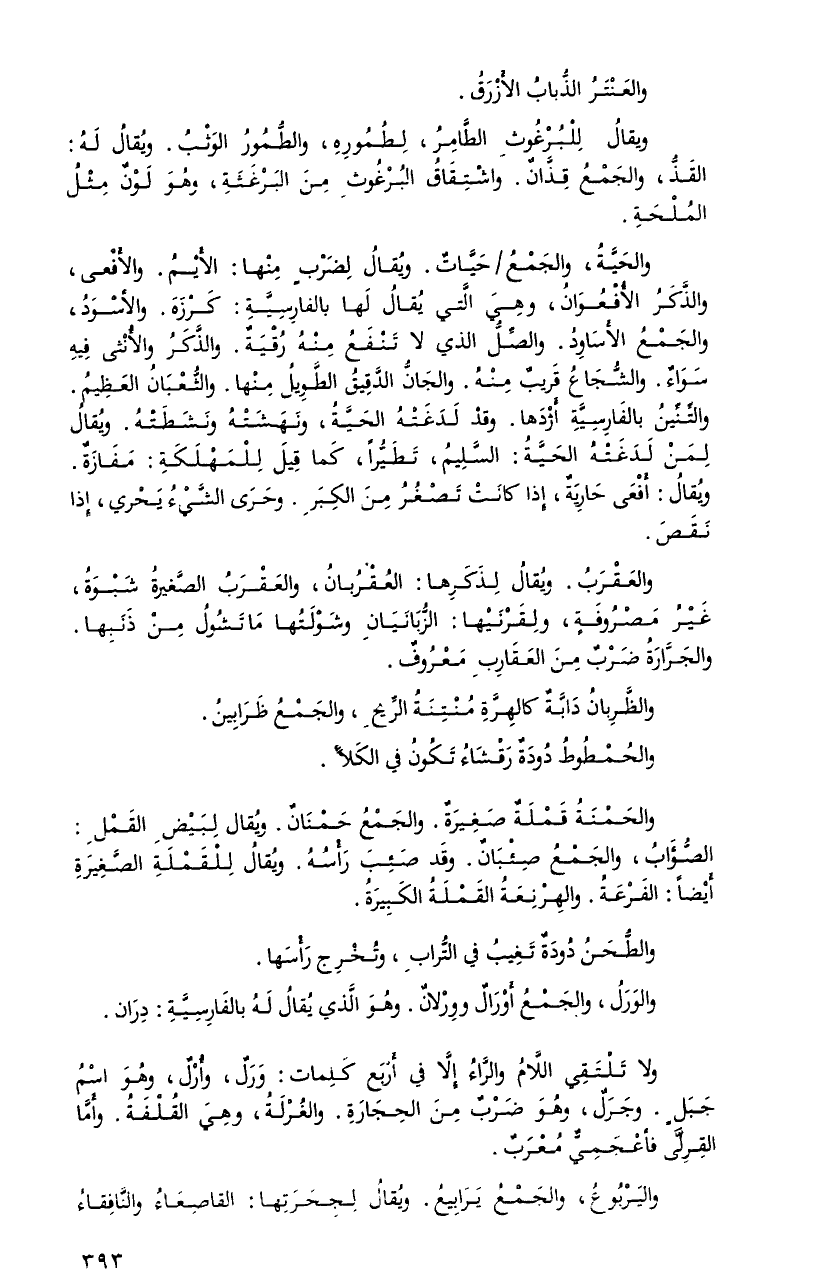 والعَنْتَرُ الذُّبابُ الأَزْرَقُ .
ويقالُ لِلْبُرْغُوثِ الطَّامِرُ ، لِطُمُورِهِ ، والطُّمُورُ الوَثْبُ . ويُقالُ لَهُ :
القَذُّ ، والجَمْعُ قِذَّانٌ . واشْتِقَاقُ البُرْغُوثِ مِنَ البَرْغَثَةِ ، وهُوَ لَوْنٌ مِثْلُ
المُلْحَةِ .
والحَيَّةُ ، والجَمْعُ / حَيَّاتٌ . ويُقالُ لِضَرْبٍ مِنْها : الأَيْمُ . والأَفْعى ،
والذَّكَرُ الأُفْعُوَانُ ، وهِيَ الَّتي يُقالُ لَها بالفارِسِيَّةِ : كَرْزَهَ . والأَسْوَدُ ،
والجَمْعُ الأَسَاوِدُ . والصِّلُّ الذي لا تَنْفَعُ مِنْهُ رُقْيَةٌ . والذَّكَرُ والأُنْثى فِيهِ
سَوَاءٌ . والشُّجَاعُ قَرِيبٌ مِنْهُ . والجَانُّ الدَّقِيقُ الطَّوِيلُ مِنْها . والثُّعْبَانُ العَظِيمُ .
والتِّنِّينُ بالفَارِسِيَّةِ أَژْدَها . وقَدْ لَدَغَتْهُ الحَيَّةُ ، ونَهَشَتْهُ ونَشَطَتْهُ . ويُقالُ
لِمَنْ لَدَغَتْهُ الحَيَّةُ : السَّلِيمُ ، تَطَيُّراً ، كَما قِيلَ لِلْمَهْلَكَةِ : مَفَازَةٌ .
ويُقالُ : أَفْعَى حَارِيَةٌ ، إذا كانَتْ تَصْغُرُ مِنَ الكِبَرِ . وحَرَى الشَّيْءُ يَحْري ، إذا
نَقَصَ .
والعَقْرَبُ . ويُقالُ لِذَكَرِها : العُقْرُبانُ ، والعَقْرَبُ الصَّغيرةُ شَبْوَةُ ،
غَيْرُ مَصْرُوفَةٍ ، ولِقَرْنَيْها : الزُّبَانَيَانِ وشَوْلَتُها مَا تَشُولُ مِنْ ذَنَبِها .
والجَرَّارَةُ ضَرْبٌ مِنَ العَقَارِبِ مَعْرُوفٌ .
والظَّرِبانُ دَابَّةٌ كالهِرَّةِ مُنْتِنَةُ الرِّيحِ ، والجَمْعُ ظَرَابِينُ .
والحُمْطُوطُ دُودَةٌ رَقْشَاءُ تَكُونُ في الكَلأِ .
والحَمْنَةُ قَمْلَةٌ صَغِيرَةٌ . والجَمْعُ حَمْنَانٌ . ويُقال لِبَيْضِ القَمْلِ :
الصُّؤَابُ ، والجَمْعُ صِئْبَانٌ . وقَد صَئِبَ رَأْسُهُ . ويُقالُ لِلْقَمْلَةِ الصَّغِيرَةِ
أَيْضاً : الفَرْعَةُ . والهِرْنِعَةُ القَمْلَةُ الكَبِيرَةُ .
والطُّحَنُ دُودَةٌ تَغِيبُ في التُّرابِ ، وتُخْرِج رَأْسَها .
والوَرَلُ ، والجَمْعُ أَوْرَالٌ ووِرْلانٌ . وهُوَ الَّذي يُقالُ لَهُ بالفَارِسِيَّةِ : دِرَان .
ولا تَلْتَقِي اللَّامُ والرَّاءُ إلَّا في أَرْبَعِ كَلِمات : وَرَلٌ ، وأُرْلٌ ، وهُوَ اسْمُ
جَبَلٍ . وجَرَلٌ ، وهُوَ ضَرْبٌ مِنَ الحِجَارَةِ . والغُرْلَةُ ، وهِيَ القُلْفَةُ . وأَمَّا
القِرِلَّى فأَعْجَمِيٌّ مُعْرَبٌ .
واليَرْبُوعُ ، والجَمْعُ يَرَابِيعُ . ويُقالُ لِجِحَرَتِها : القاصِعَاءُ والنَّافِقاءُ
٣٩٣